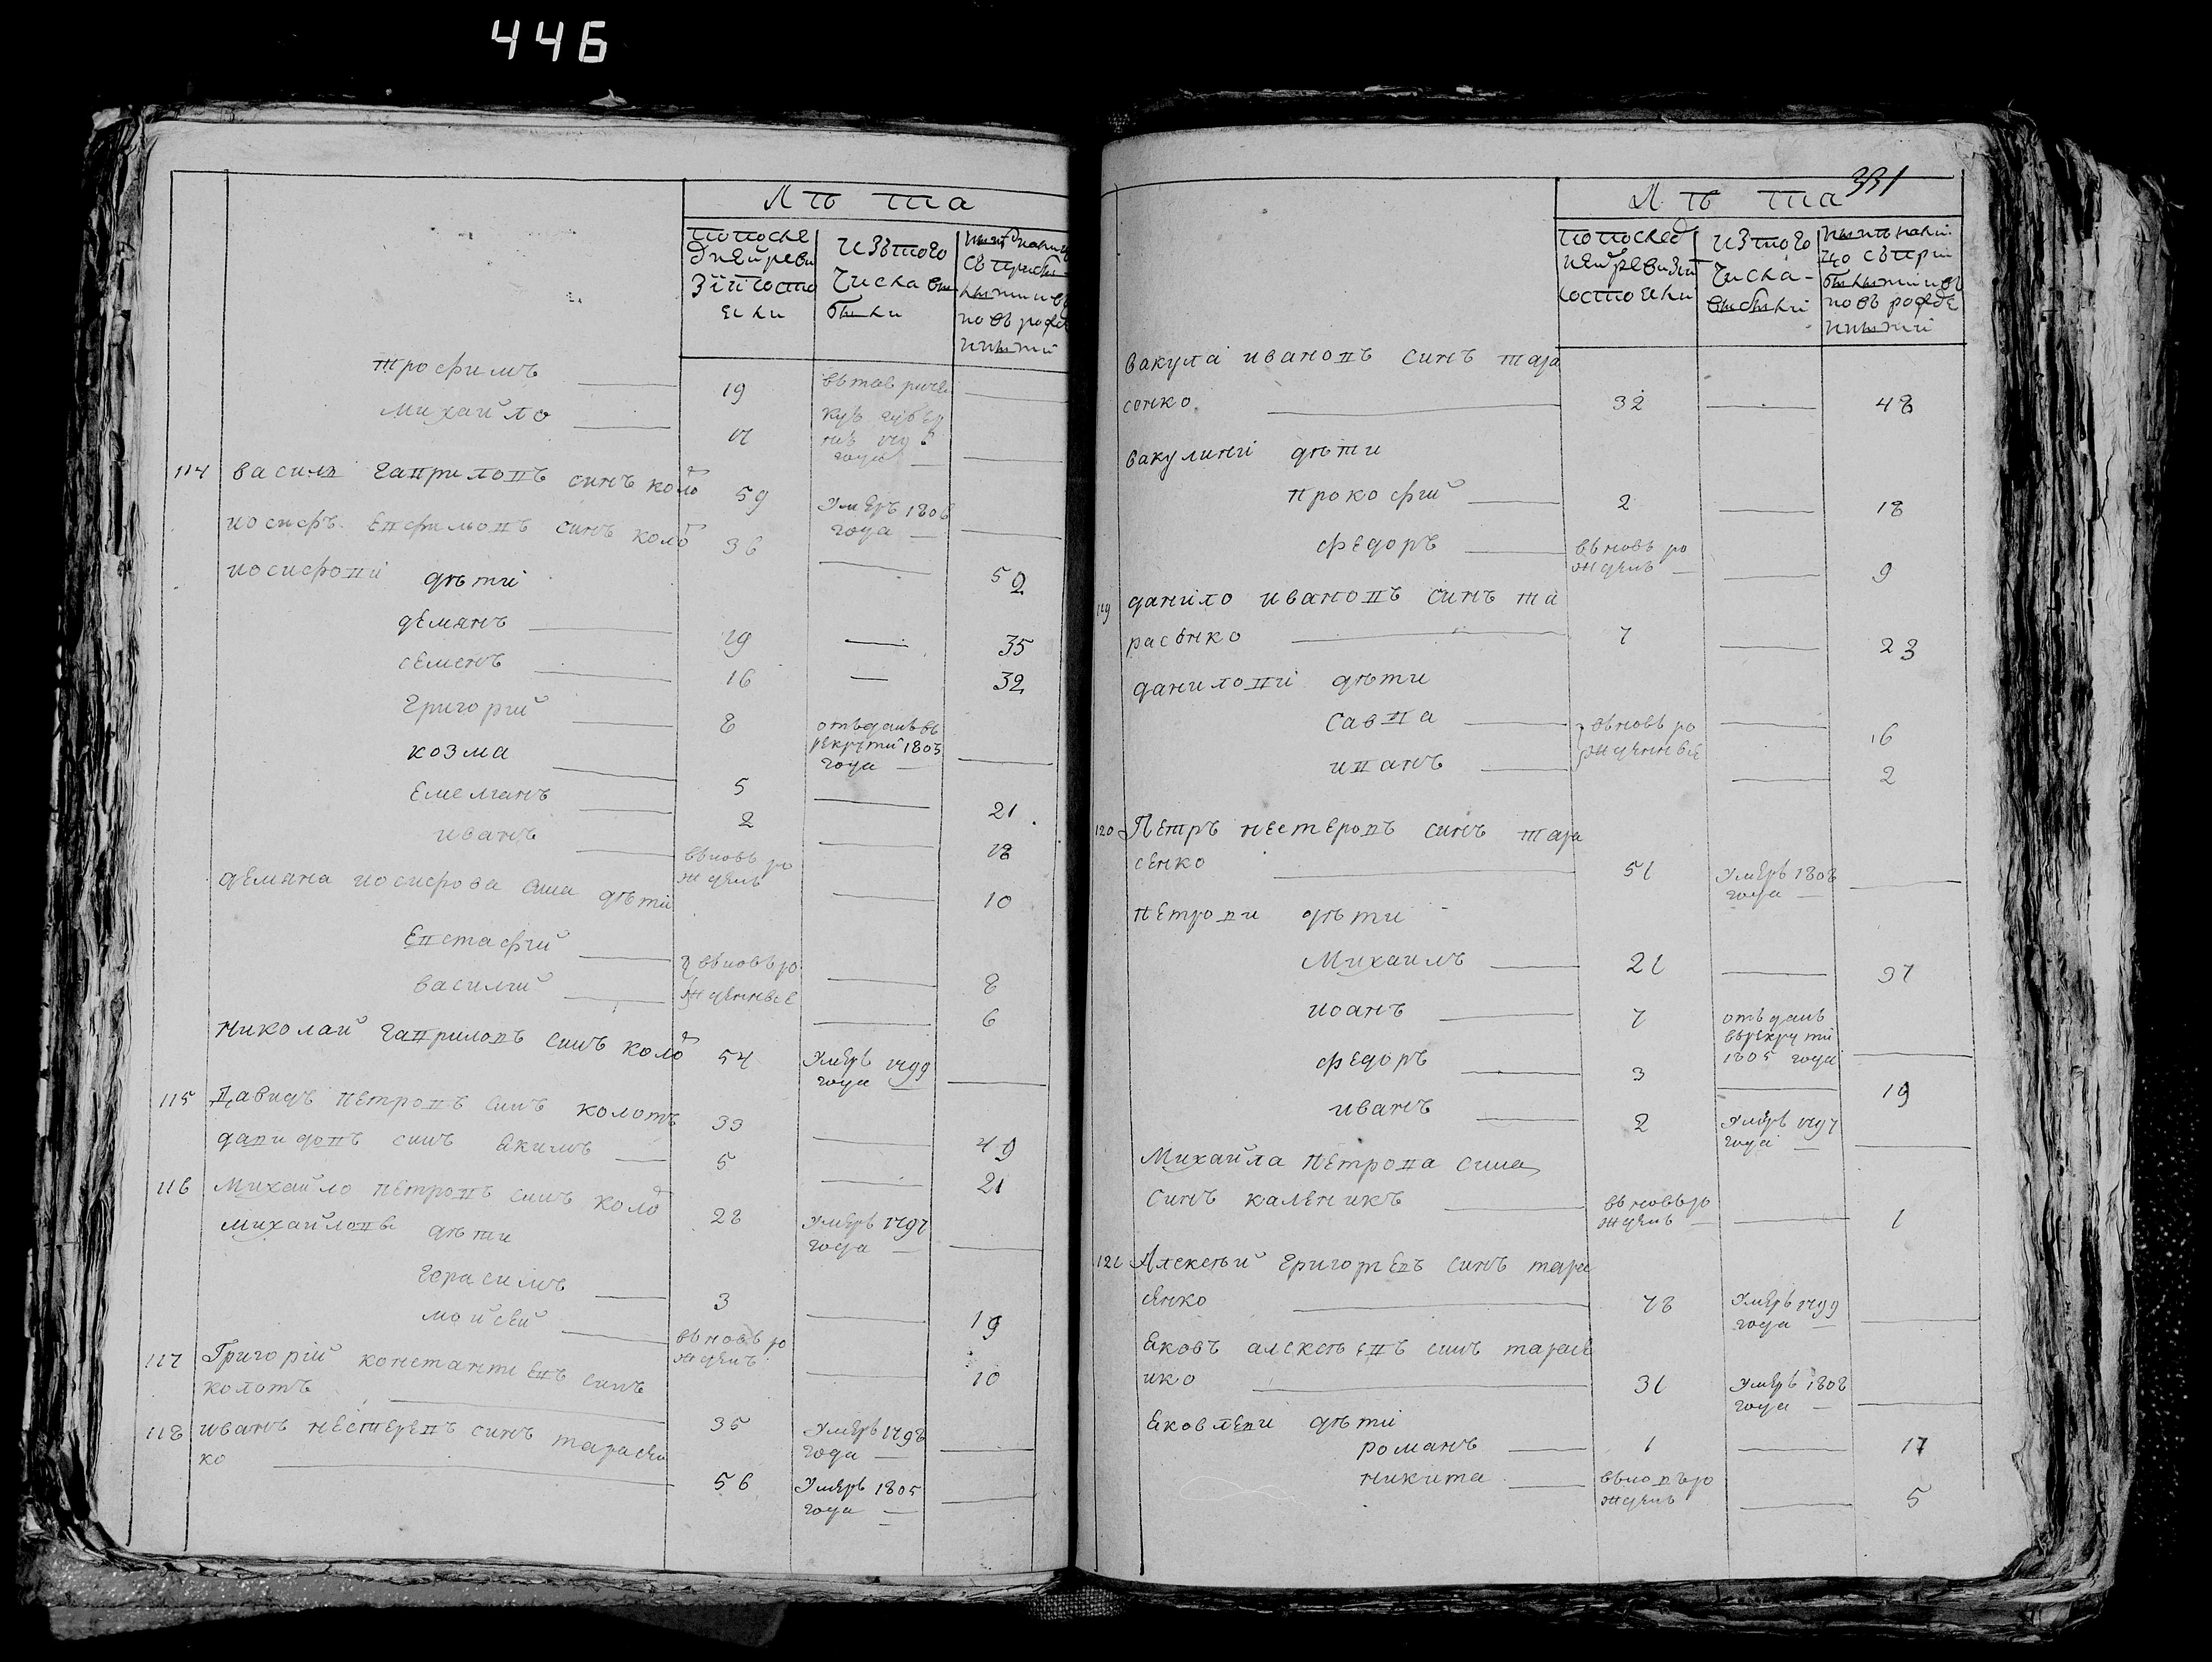 446
Лѣта
по после
дней реви
зіи состо
яли
изъ того
числа вы
были
съ прибы
лыми и в
новь рожд
трофимъ — 19 въ таври
михайло — 17
114 василь гавриловъ синъ коло 59 умеръ 1806
года —
иосифъ евфимовъ синъ коло 36 — 52
иосифови дѣти
демянъ — 19 — 35
семенъ — 16 — 32
григорій — 8 отъданъ въ
рекрути 1805
года —
козма — 5 — 21
емелянъ — 2 — 18
иванъ — вьновь ро
жденъ — 10
демяна иосифова сина дѣти
евстафий — вьновь ро — 8
василий — жденные — 6
николай гавриловъ синъ коло 54 умеръ 1799
года —
115 Давидъ петровъ синъ колотъ 33 — 49
давидовъ синъ якимъ — 5 — 21
116 михайло петровъ синъ коло 28 умеръ 1797
года —
михайловы дѣти
герасимъ — 3 — 19
мойсей — вьновь ро
жденъ — 10
117 Григорій константиевъ синъ
колотъ — 35 умеръ 1798
года —
118 иванъ нестеревъ синъ тарасен
ко — 56 умеръ 1805
года —
331
Лѣта
по послед
ней ревизии
состояли
изъ того
числа
выбыли
съ при
былыми и въ
новь рожде
вакула ивановъ синъ тара
сенко — 32 — 48
вакулині дѣти
прокофий — 2 — 18
федоръ — вьновь ро
жденъ — 9
119 данило ивановъ синъ та
расенко — 7 — 23
данилові дѣти
савва — вьновь ро — 6
иванъ — жденные — 2
120 Петръ нестеровъ синъ тара
сенко — 51 умеръ 1808
года —
петрови дѣти
Михаилъ — 21 — 37
иоанъ — 7 отъданъ
въ рекрути
1805 года —
федоръ — 3 — 19
иванъ — 2 умеръ 1797
года —
Михайла петрова сина
синъ каленикъ — вьновь ро
жденъ — 1
121 Алексѣй григорьевъ синъ тара
сенко — 78 умеръ 1799
года —
яковъ алексѣевъ синъ тарасе
нко — 31 умеръ 1808
года —
яковлеви дѣти
романъ — 1 — 17
никита — вьновъ ро
жденъ — 5